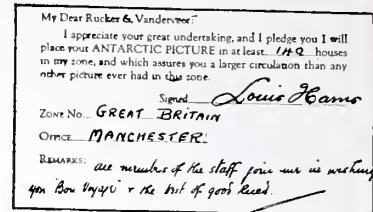 My Dear Rucker & Vanderveer:
I appreciate your great undertaking, and I pledge you I will
place your ANTARCTIC PICTURE in at least 140 houses
in my zone, and which assures you a larger circulation than any
other picture ever had in this zone.
Signed Louis Hams
ZONE No. GREAT BRITAIN
OFFICE MANCHESTER
REMARKS:
all members of the staff join me in wishing
you "Bon Voyage" & the best of good luck.